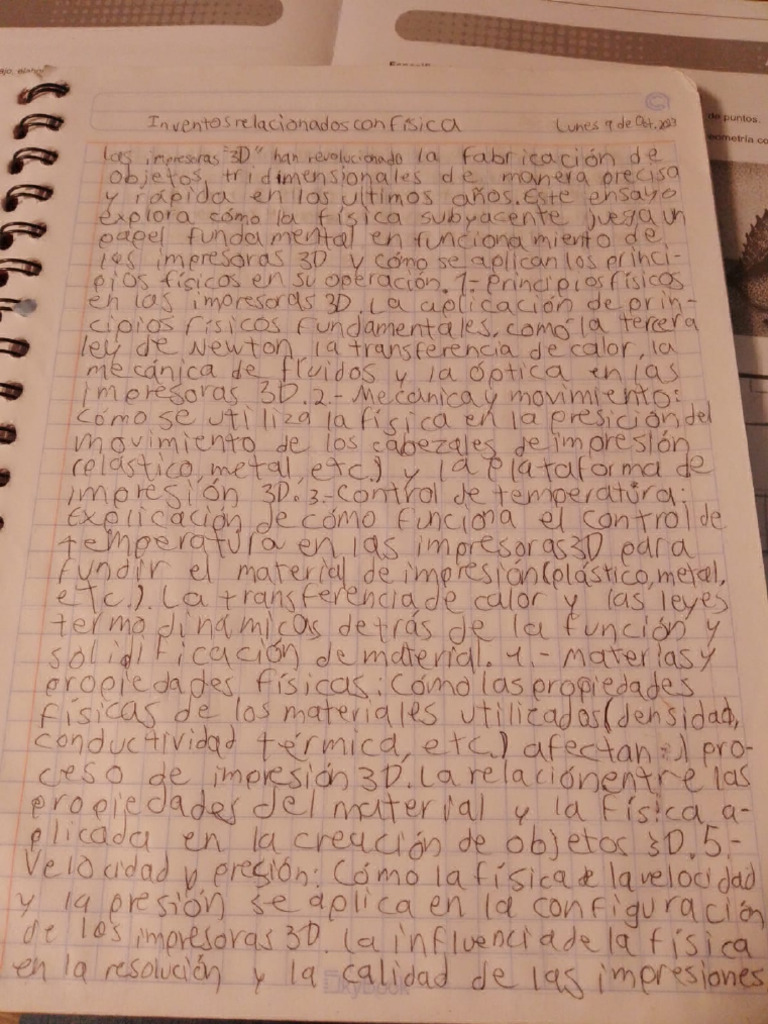 Inventos relacionados con física
Lunes 9 de Oct. 2023
Las impresoras "3D" han revolucionado la fabricación de
objetos tridimensionales de manera precisa
y rápida en los ultimos años. Este ensayo
explora cómo la física subyacente juega un
papel fundamental en funcionamiento de
las impresoras 3D y cómo se aplican los princi-
pios físicos en su operación. 1- Principios físicos
en las impresoras 3D. La aplicación de prin-
cipios físicos fundamentales, como la tercera
ley de Newton, la transferencia de calor, la
mecánica de fluidos y la óptica en las
impresoras 3D. 2.- Mecánica y movimiento:
cómo se utiliza la física en la presición del
movimiento de los cabezales de impresión
(plástico, metal, etc.) y la plataforma de
impresión 3D. 3.- Control de temperatura:
Explicación de cómo funciona el control de
temperatura en las impresoras 3D para
fundir el material de impresión (plástico, metal,
etc.). La transferencia de calor y las leyes
termodinámicas detrás de la función y
solidificación de material. 4.- Materias y
propiedades físicas: Cómo las propiedades
físicas de los materiales utilizados (densidad,
conductividad térmica, etc.) afectan al pro-
ceso de impresión 3D. La relación entre las
propiedades del material y la física a-
plicada en la creación de objetos 3D. 5.-
Velocidad y presión: Cómo la física de la velocidad
y la presión se aplica en la configuración
de las impresoras 3D. La influencia de la física
en la resolución y la calidad de las impresiones
de puntos.